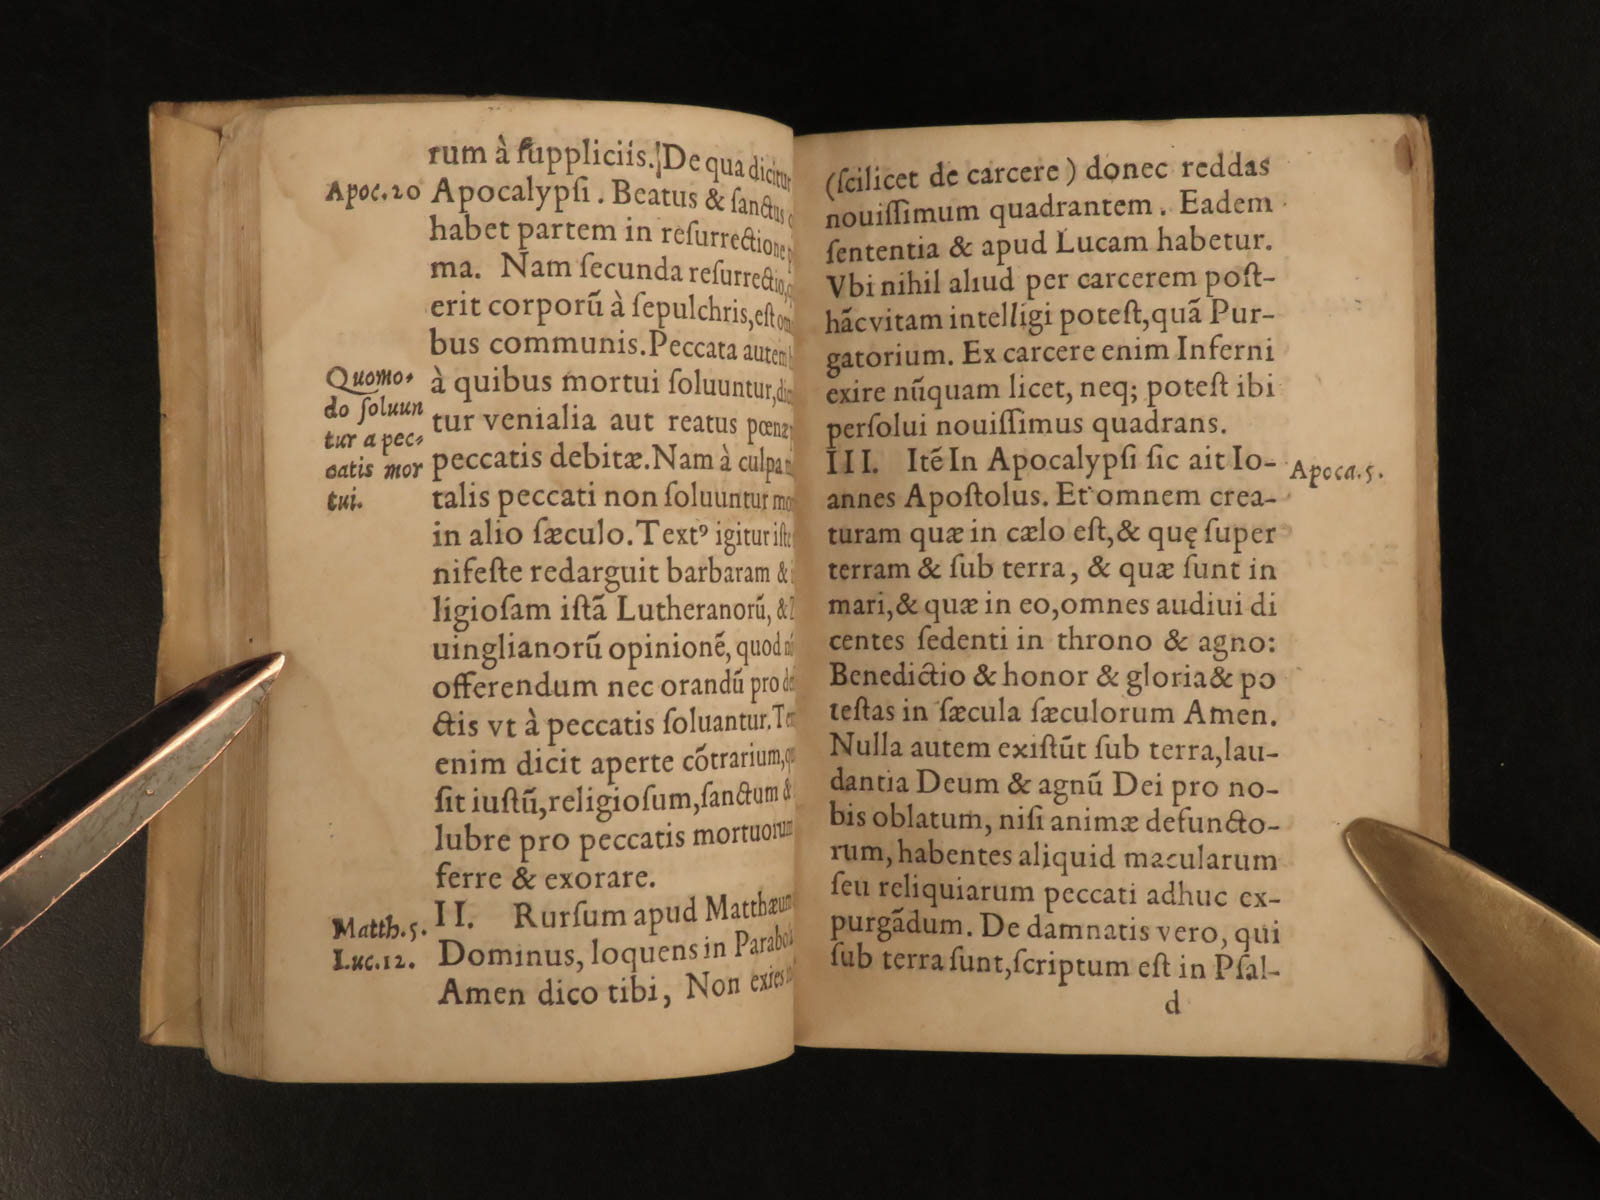 rum à ſuppliciis. De qua dicitur
Apoc.20
Apocalypſi. Beatus & ſanctus
habet partem in reſurrectione
ma. Nam ſecunda reſurrectio,
erit corporũ à ſepulchris, eſt
bus communis. Peccata autem
Quomo-
do ſoluun
tur a pec-
catis mor
tui.
à quibus mortui ſoluuntur,
tur venialia aut reatus pœnæ
peccatis debitæ. Nam à culpa
talis peccati non ſoluuntur
in alio ſæculo. Textꝰ igitur iſte
nifeſte redarguit barbaram &
ligioſam iſtã Lutheranorũ, &
uinglianorũ opinionẽ, quod
offerendum nec orandũ pro
ctis vt à peccatis ſoluantur.
enim dicit aperte cõtrarium,
ſit iuſtũ, religioſum, ſanctum &
lubre pro peccatis mortuorum
ferre & exorare.
Matth.5.
Luc.12.
II. Rurſum apud Matthæum
Dominus, loquens in
Amen dico tibi, Non exies
(ſcilicet de carcere) donec reddas
nouiſſimum quadrantem. Eadem
ſententia & apud Lucam habetur.
Vbi nihil aliud per carcerem poſt-
hãc vitam intelligi poteſt, quã Pur-
gatorium. Ex carcere enim Inferni
exire nũquam licet, neq; poteſt ibi
perſolui nouiſſimus quadrans.
III. Itẽ In Apocalypſi ſic ait Io-
Apoca.5.
annes Apoſtolus. Et omnem crea-
turam quæ in cælo eſt, & quę ſuper
terram & ſub terra, & quæ ſunt in
mari, & quæ in eo, omnes audiui di
centes ſedenti in throno & agno:
Benedictio & honor & gloria & po
teſtas in ſæcula ſæculorum Amen.
Nulla autem exiſtũt ſub terra, lau-
dantia Deum & agnũ Dei pro no-
bis oblatum, niſi animæ defuncto-
rum, habentes aliquid macularum
ſeu reliquiarum peccati adhuc ex-
purgãdum. De damnatis vero, qui
ſub terra ſunt, ſcriptum eſt in Pſal-
d